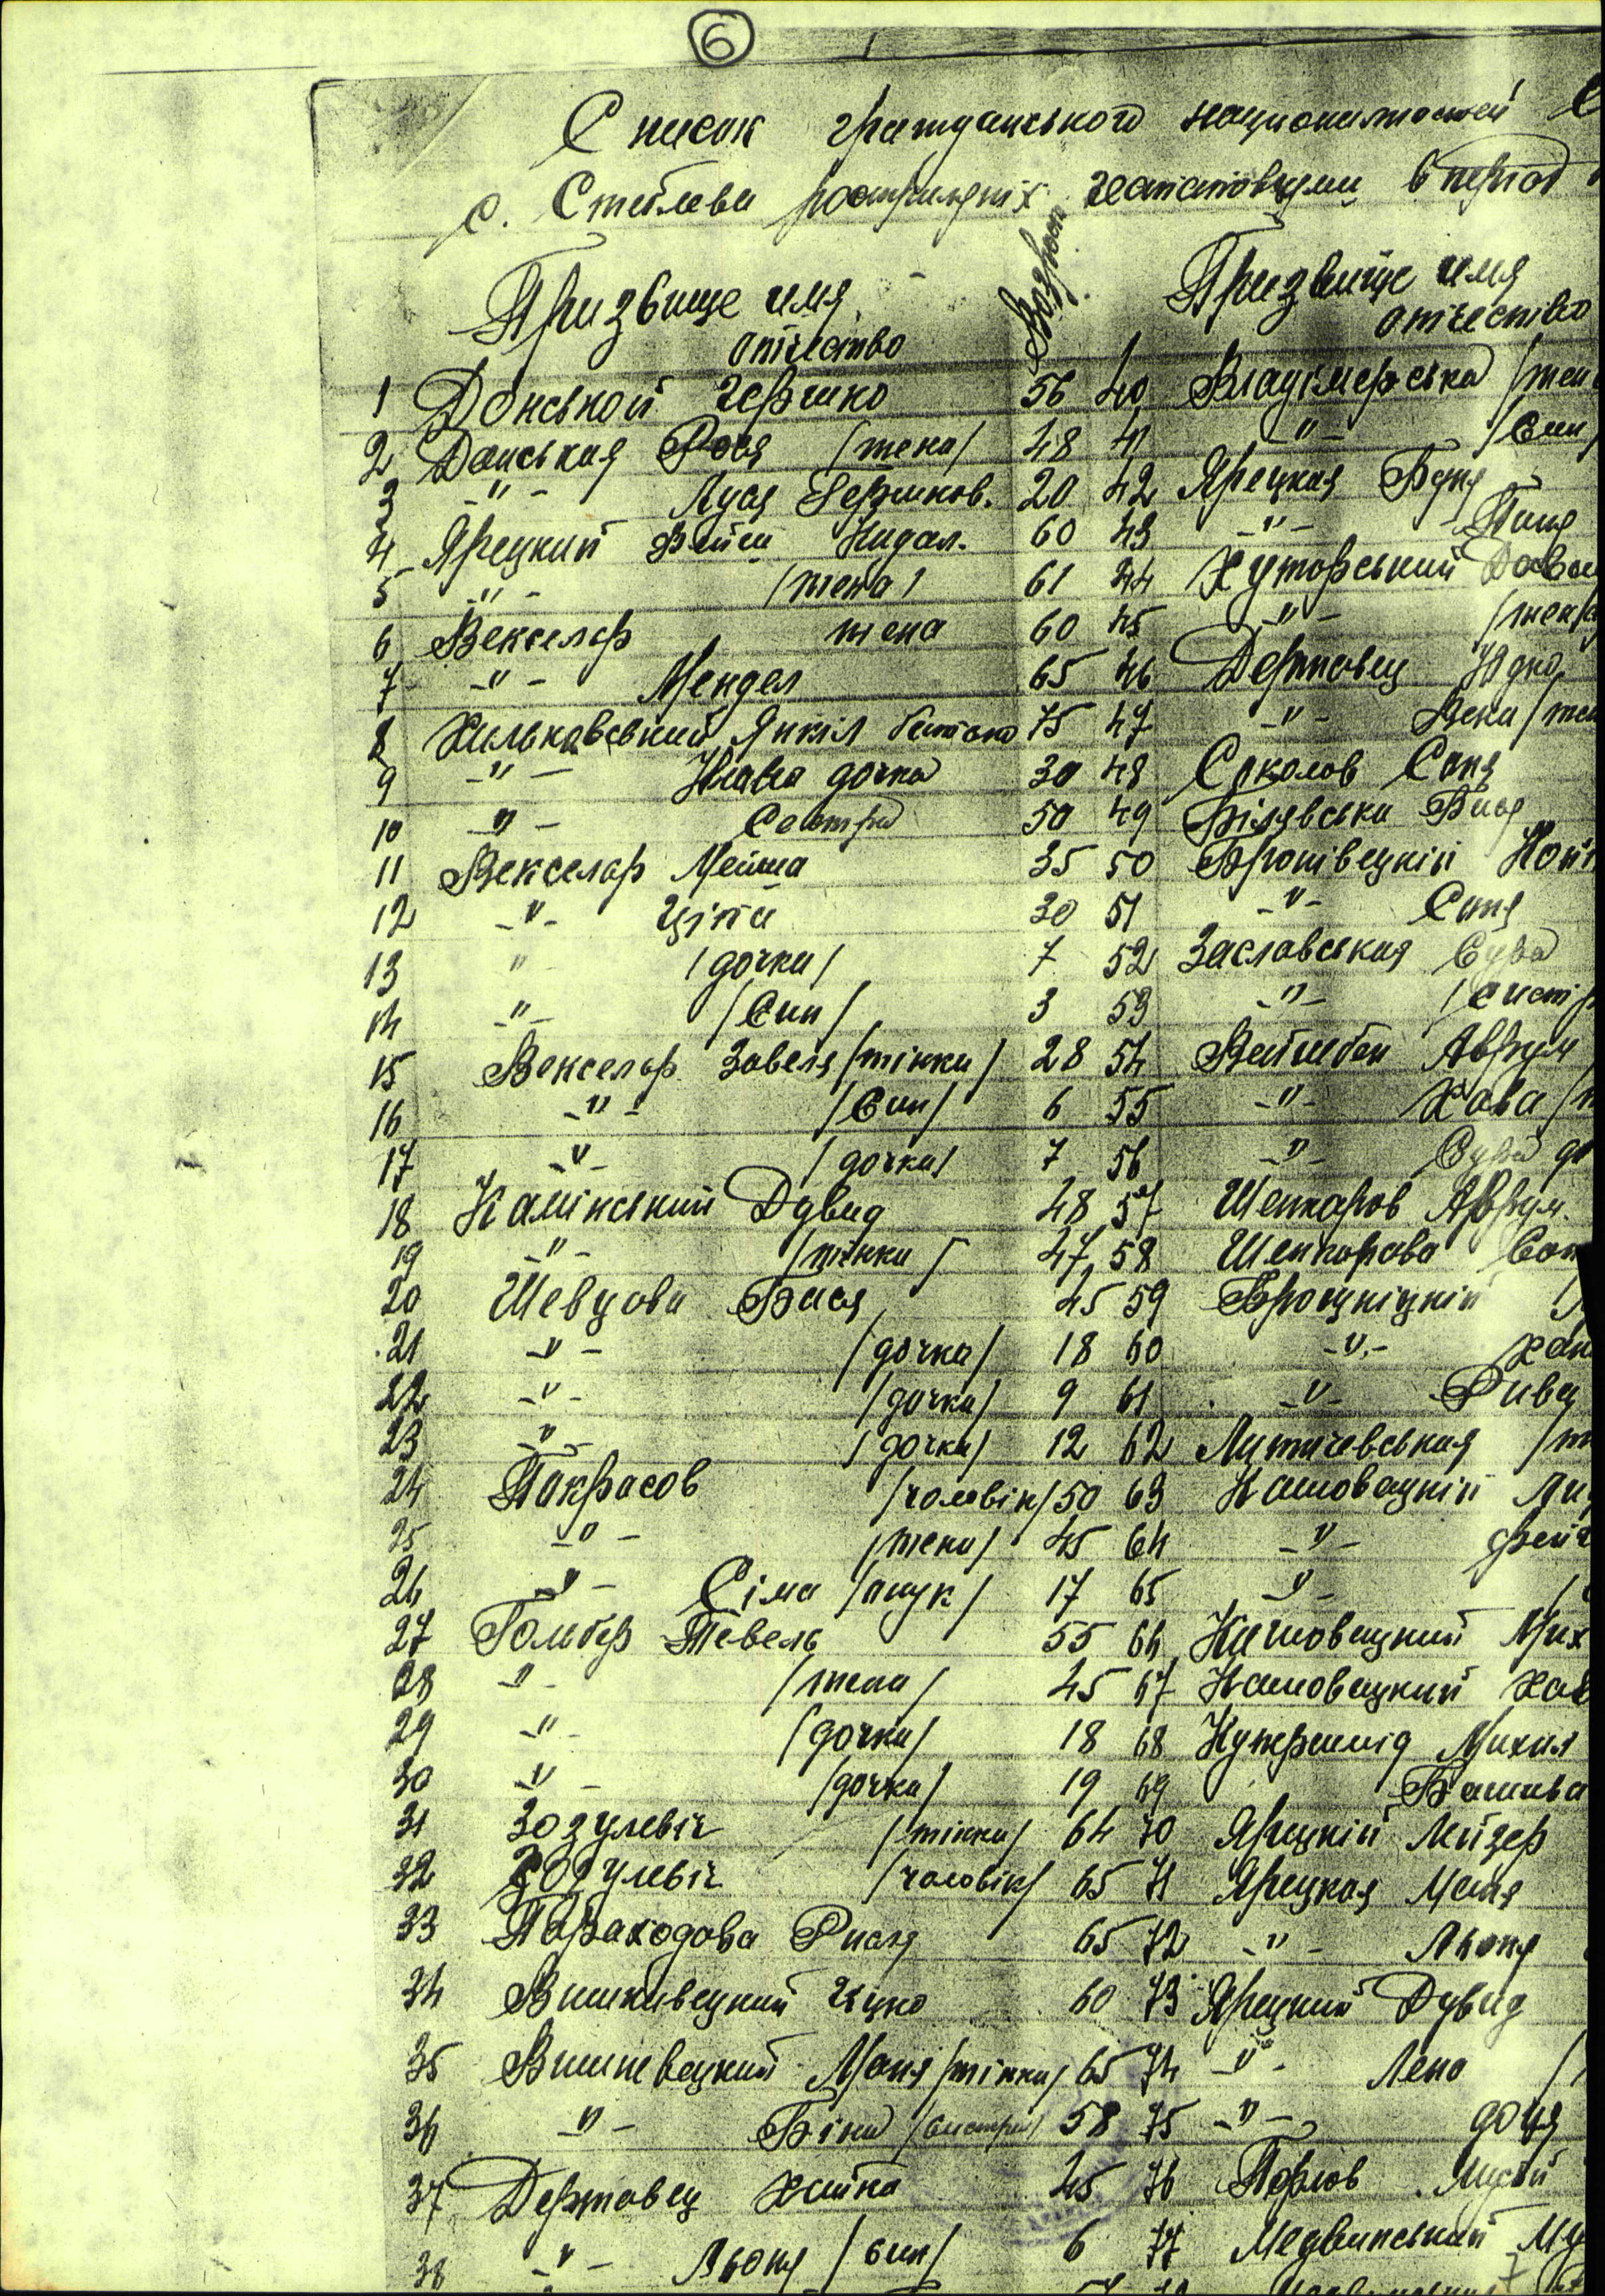 6
Список гражданського национальностей
с. Стеблева росстриляних гестаповцями в період
Призвище имя Возраст Призвище имя
отчество отчество
1 Донськой Гершко 56 40 Владімерська /жен
2 Донськая Рося /жена/ 48 41 -"- /син/
3 -"- Луся Гершков. 20 42 Ярецкая Буня
4 Ярецкий 60 43 -"-
5 -"- /жена/ 61 44 Хуторський Давы
6 Векселяр жена 60 45 -"- /жена
7 -"- Мендел 65 46 Державец Юдко
8 Хильковський Янкіл батько 75 47 -"- /жен
9 -"- дочка 30 48 Соколов Соня
10 -"- Сестра 50 49 Білявська Бася
11 Векселяр Мейша 35 50
12 -"- Ціпа 30 51 -"- Соня
13 " /дочка/ 7 52 Заславськая Сура
14 -"- /Син/ 3 53 -"- /систр
15 Векселяр Завеля /жінка/ 28 54 Аврум
16 -"- /Син/ 6 55 -"- Хава /ж
17 -"- /дочка/ 7 56 -"- Сура до
18 Камінський Дувид 48 57 Шепкаров Аврум.
19 -"- /жінка/ 47 58 Шепкарова Сон
20 Шевцова Бася 45 59
21 -"- /дочка/ 18 60 -"- Хан
22 -"- /дочка/ 9 61 -"- Рива
23 -"- /дочка/ 12 62 Литичевськая /ж
24 Пакрасов /чоловік/ 50 63 Кашовацкій
25 -"- /жена/ 45 64 -"-
26 -"- Сіма /внук/ 17 65 -"-
27 Гольбер Тевель 55 66 Кашовацкий Мих
28 -"- /жена/ 45 67 Кашовацкий Хав
29 -"- /дочка/ 18 68 Купершмід Михил
30 -"- /дочка/ 19 69 Башива
31 Зозулевіч /жінка/ 64 70 Ярецкій Лейзер
32 Зозулевіч /чоловік/ 65 71 Ярецкая Маня
33 Параходова Рися 65 72 -"- Льоня
34 Вишнивецкий Ицко 60 73 Ярецкий Дувид
35 Вишнівецкий Маня /жінка/ 65 74 -"- Лена
36 -"- Біна /систра/ 58 75 -"- доця
37 Держовец Хайка 45 76
38 -"- Льоня /син/ 6 77 Медвинський